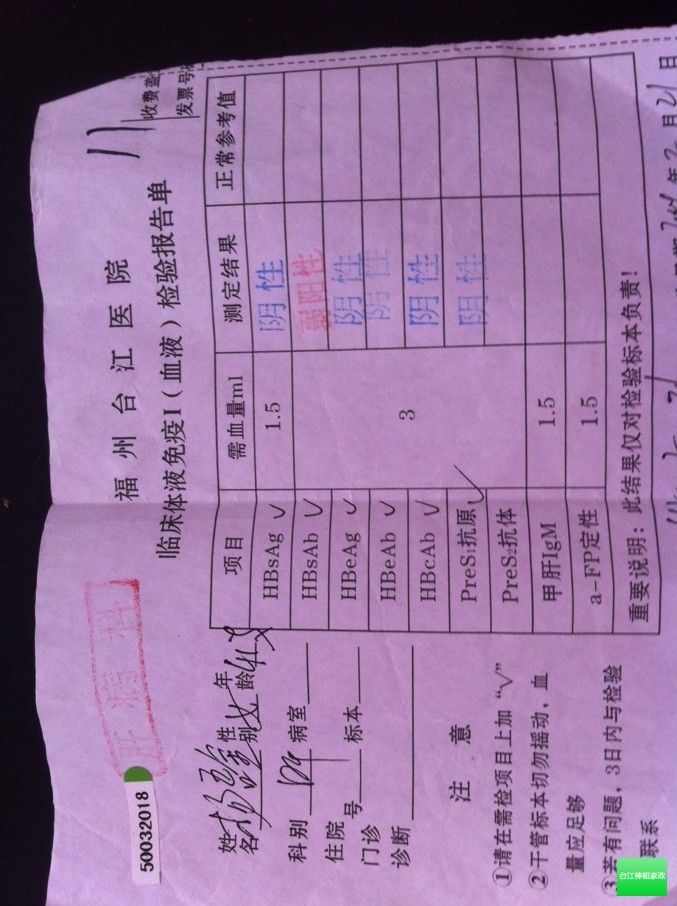 福州台江医院
临床体液免疫I（血液）检验报告单
收费盖
发票号
肝病科
50032018
姓名 性别 女 年龄
科别 病室
住院号 标本
门诊
诊断
注意
①请在需检项目上加“√”
②干管标本切勿摇动，血
量应足够
③若有问题，3日内与检验
联系
项目 需血量ml 测定结果 正常参考值
HBsAg √ 1.5 阴性
HBsAb √ 3 弱阳性
HBeAg √ 阴性
HBeAb √ 阴性
HBcAb √ 阴性
PreS₁抗原 √ 阴性
PreS₂抗体
甲肝IgM 1.5
a-FP定性 1.5
重要说明：此结果仅对检验标本负责！
年 月 21 日
台江棒姐家政